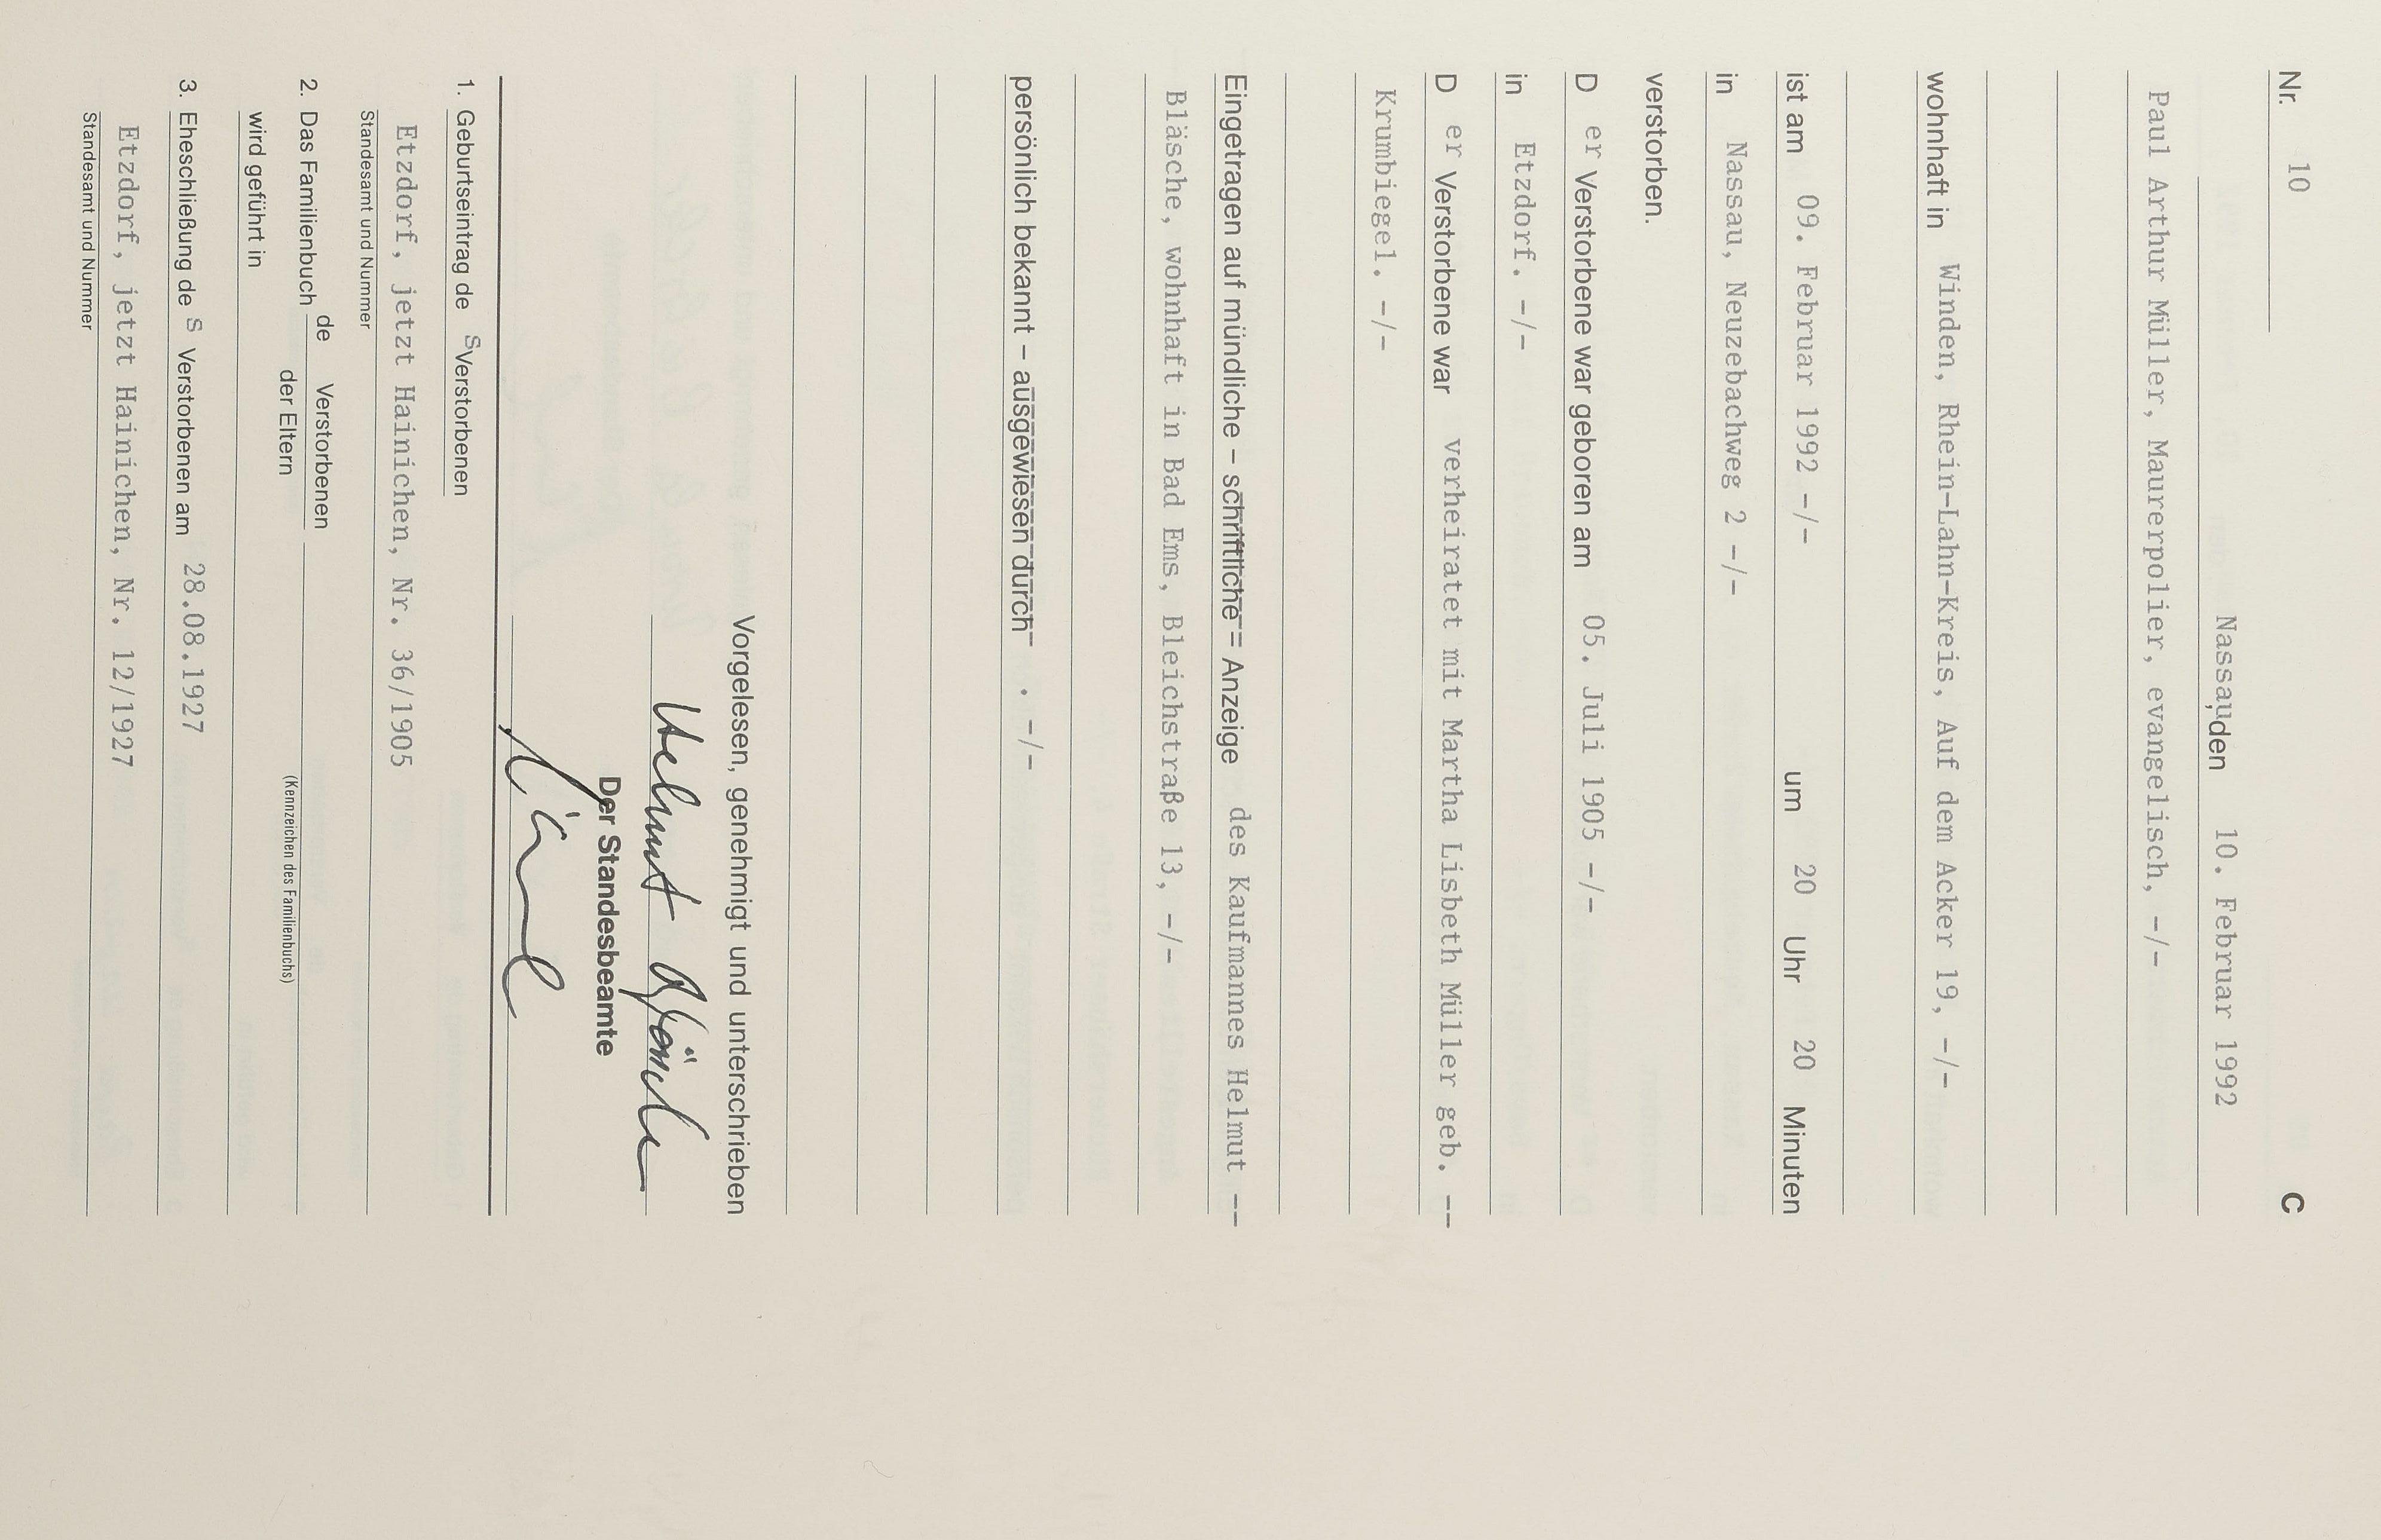 Nr. 10 C
Nassau, den 10. Februar 1992
Paul Arthur Müller, Maurerpolier, evangelisch, -/-
wohnhaft in Winden, Rhein-Lahn-Kreis, Auf dem Acker 19, -/-
ist am 09. Februar 1992 -/- um 20 Uhr 20 Minuten
in Nassau, Neuzebachweg 2 -/-
verstorben.
D er Verstorbene war geboren am 05. Juli 1905 -/-
in Etzdorf. -/-
D er Verstorbene war verheiratet mit Martha Lisbeth Müller geb. --
Krumbiegel. -/-
Eingetragen auf mündliche – schriftliche – Anzeige des Kaufmannes Helmut --
Bläsche, wohnhaft in Bad Ems, Bleichstraße 13, -/-
persönlich bekannt – ausgewiesen durch . -/-
Vorgelesen, genehmigt und unterschrieben
Helmut Bläsche
Der Standesbeamte
1. Geburtseintrag de s Verstorbenen
Etzdorf, jetzt Hainichen, Nr. 36/1905
Standesamt und Nummer
2. Das Familienbuch de Verstorbenen
der Eltern
(Kennzeichen des Familienbuchs)
wird geführt in
3. Eheschließung de s Verstorbenen am 28.08.1927
Etzdorf, jetzt Hainichen, Nr. 12/1927
Standesamt und Nummer